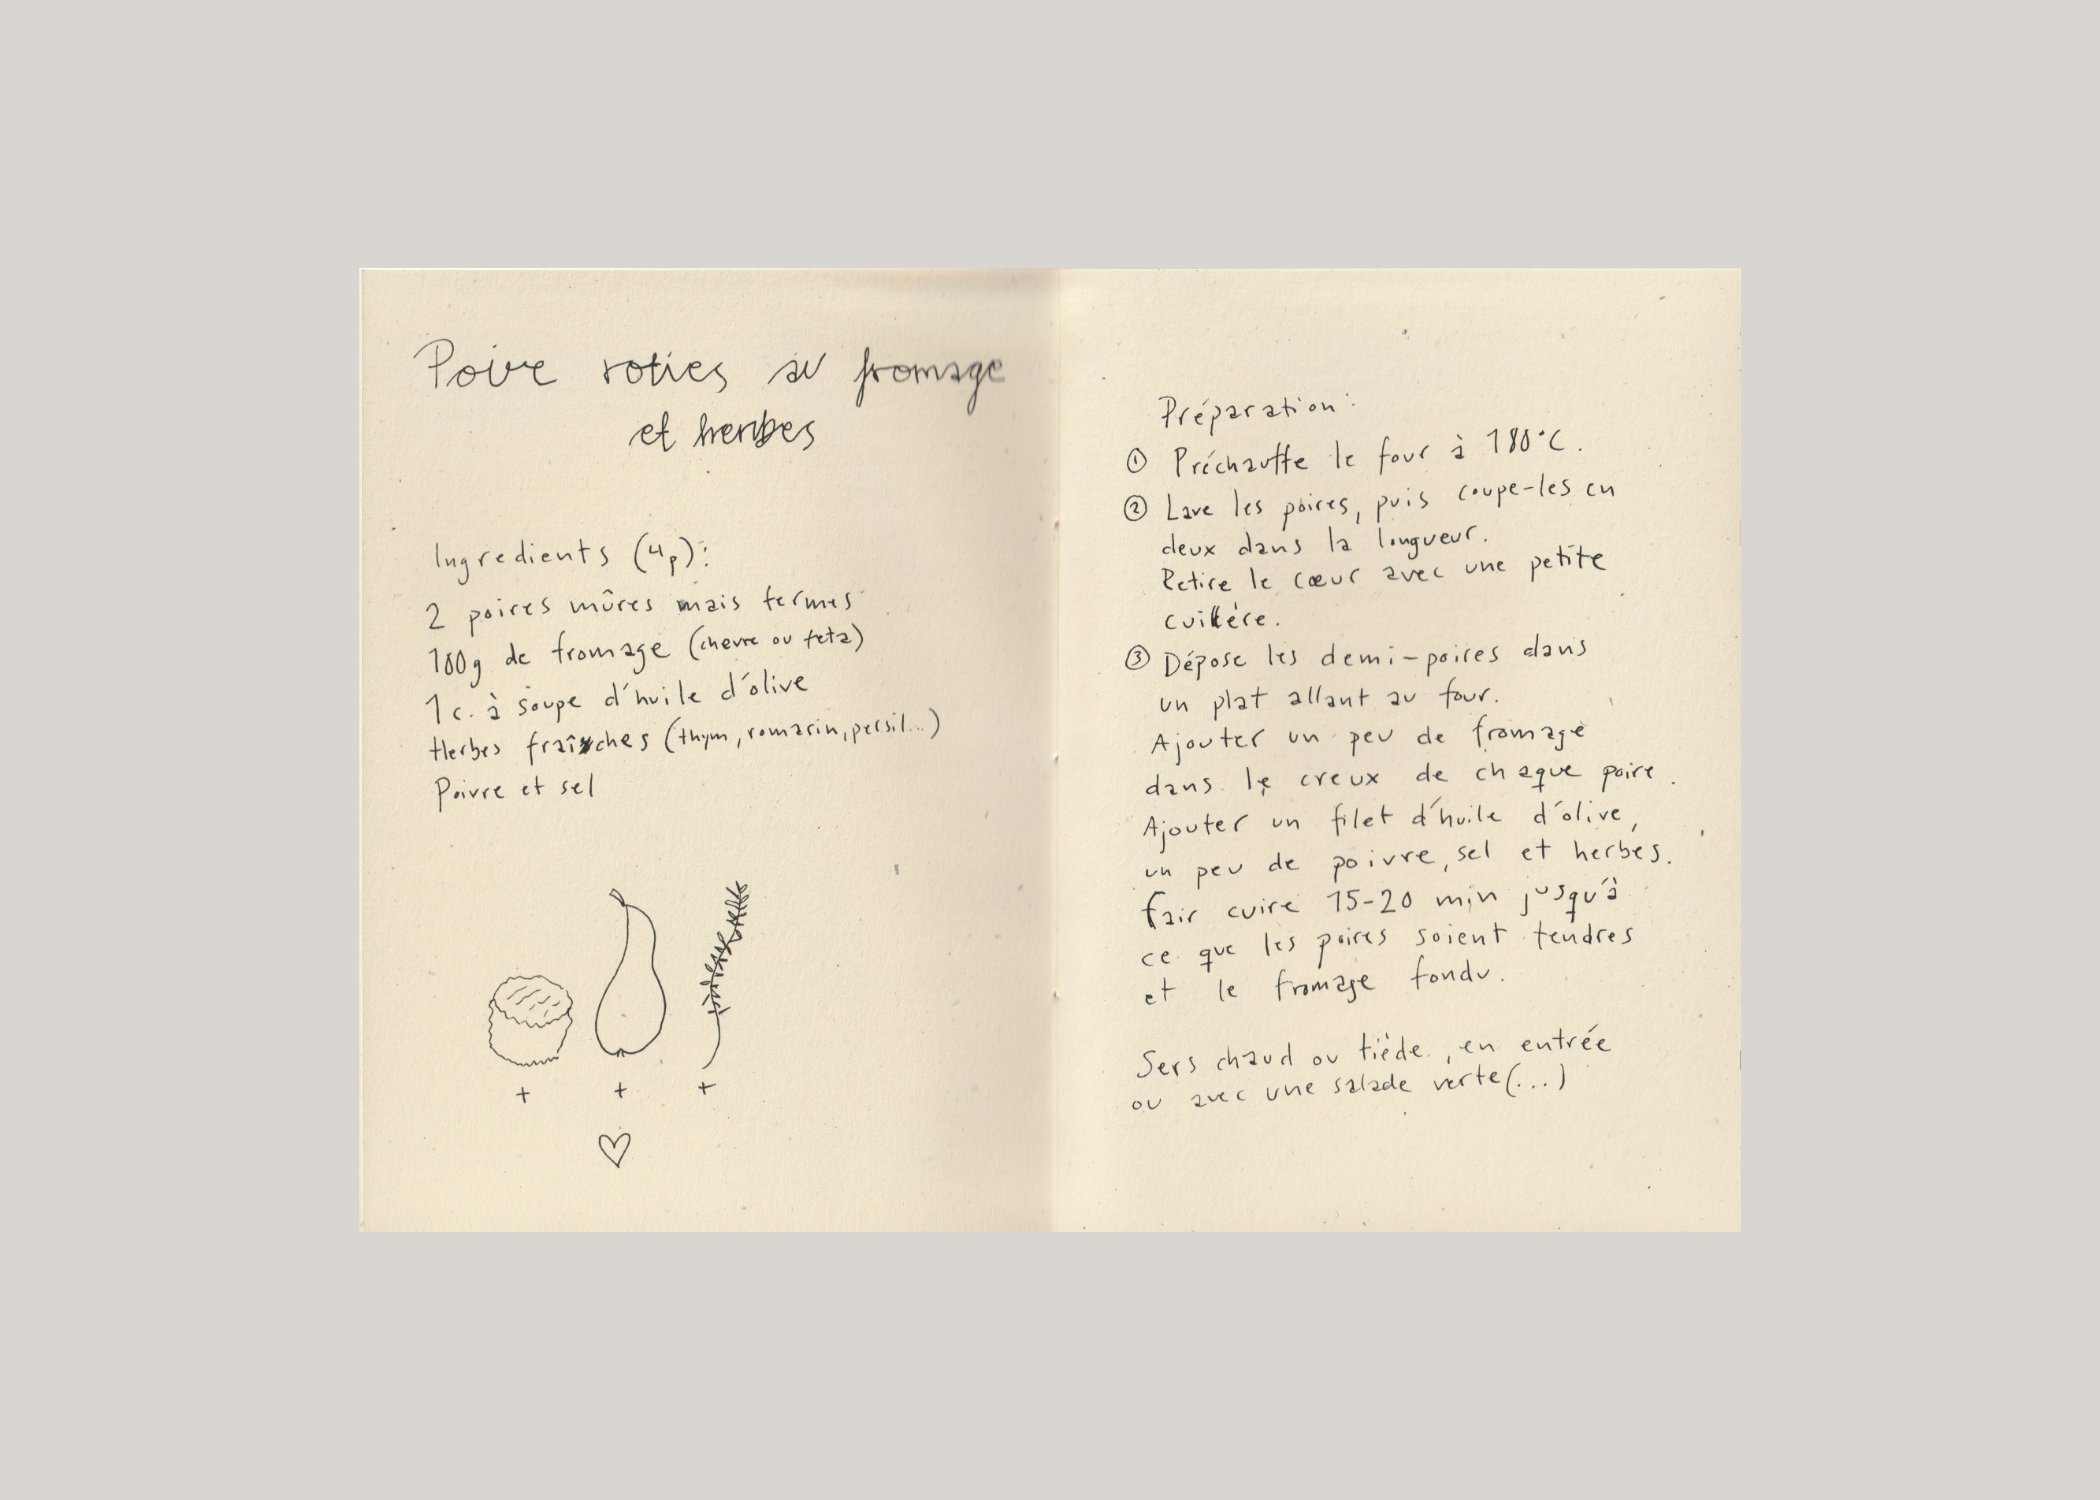 Poire roties au fromage
et herbes
Ingredients (4p):
2 poires mûres mais fermes
100g de fromage (chevre ou feta)
1 c. à soupe d'huile d'olive
Herbes fraîches (thym, romarin, persil...)
Poivre et sel
+ + +
Préparation:
① Préchauffe le four à 180°C.
② Lave les poires, puis coupe-les en
deux dans la longueur.
Retire le cœur avec une petite
cuillère.
③ Dépose les demi-poires dans
un plat allant au four.
Ajouter un peu de fromage
dans le creux de chaque poire.
Ajouter un filet d'huile d'olive,
un peu de poivre, sel et herbes.
Fair cuire 15-20 min jusqu'à
ce que les poires soient tendres
et le fromage fondu.
Sers chaud ou tiède, en entrée
ou avec une salade verte (...)